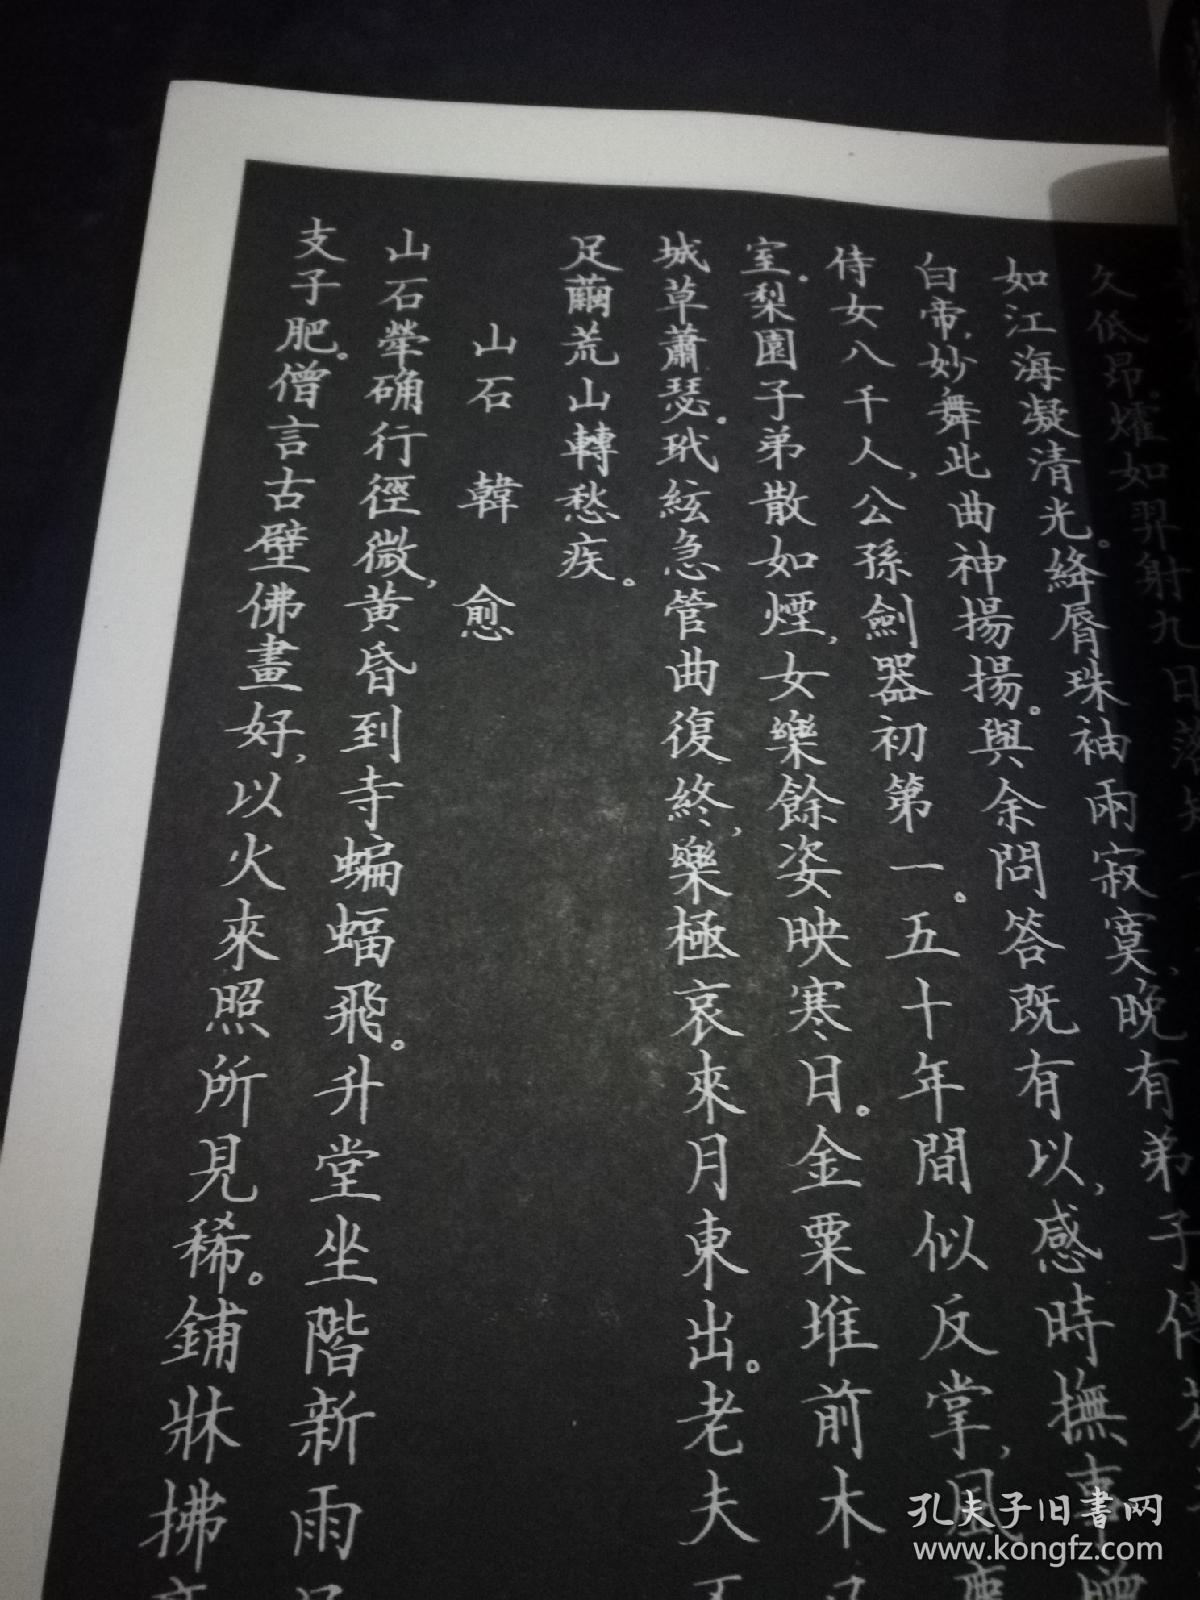 久低昂。㸌如羿射九日落
如江海凝清光。絳脣珠袖兩寂寞，晚有弟子傳芬
白帝，妙舞此曲神揚揚。與余問答既有以，感時撫事增
侍女八千人，公孫劍器初第一。五十年間似反掌，風塵
室。梨園子弟散如煙，女樂餘姿映寒日。金粟堆前木
城草蕭瑟。玳絃急管曲復終，樂極哀來月東出。老夫不
足繭荒山轉愁疾。
山石 韓愈
山石犖确行徑微，黄昏到寺蝙蝠飛。升堂坐階新雨
支子肥。僧言古壁佛畫好，以火來照所見稀。鋪牀拂
孔夫子旧書网
www.kongfz.com